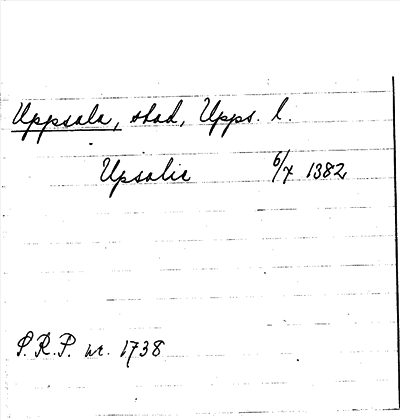 Uppsala, stad, Upps. l.
Upsalie 6/7 1382
S.R.P. nr. 1738